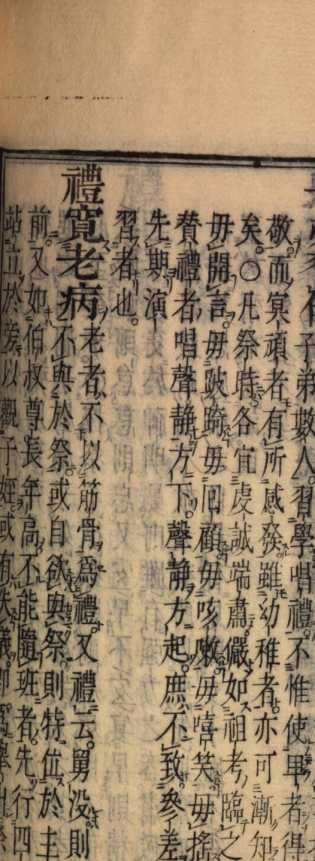 子弟數人。習學唱禮。不惟使畢者得
敬。而冥頑者有所感發。雖幼稚者。亦可漸知
矣。〇凡祭時。各宜虔誠端肅。儼如祖考臨之
毋開言。毋跛踦。毋回顧。毋咳嗽。毋嘻笑。毋搖
贊禮者。唱聲靜方下。聲靜方起。庶不致參差
先期演
習者也。
禮寬老病 老者不以筋骨爲禮。又禮云。舅没則
不與於祭。或自欲與祭。則特位於主
前。又如伯叔尊長。年高不能隨班者。先行四
站立於旁。以觀子姪。或有失儀。即